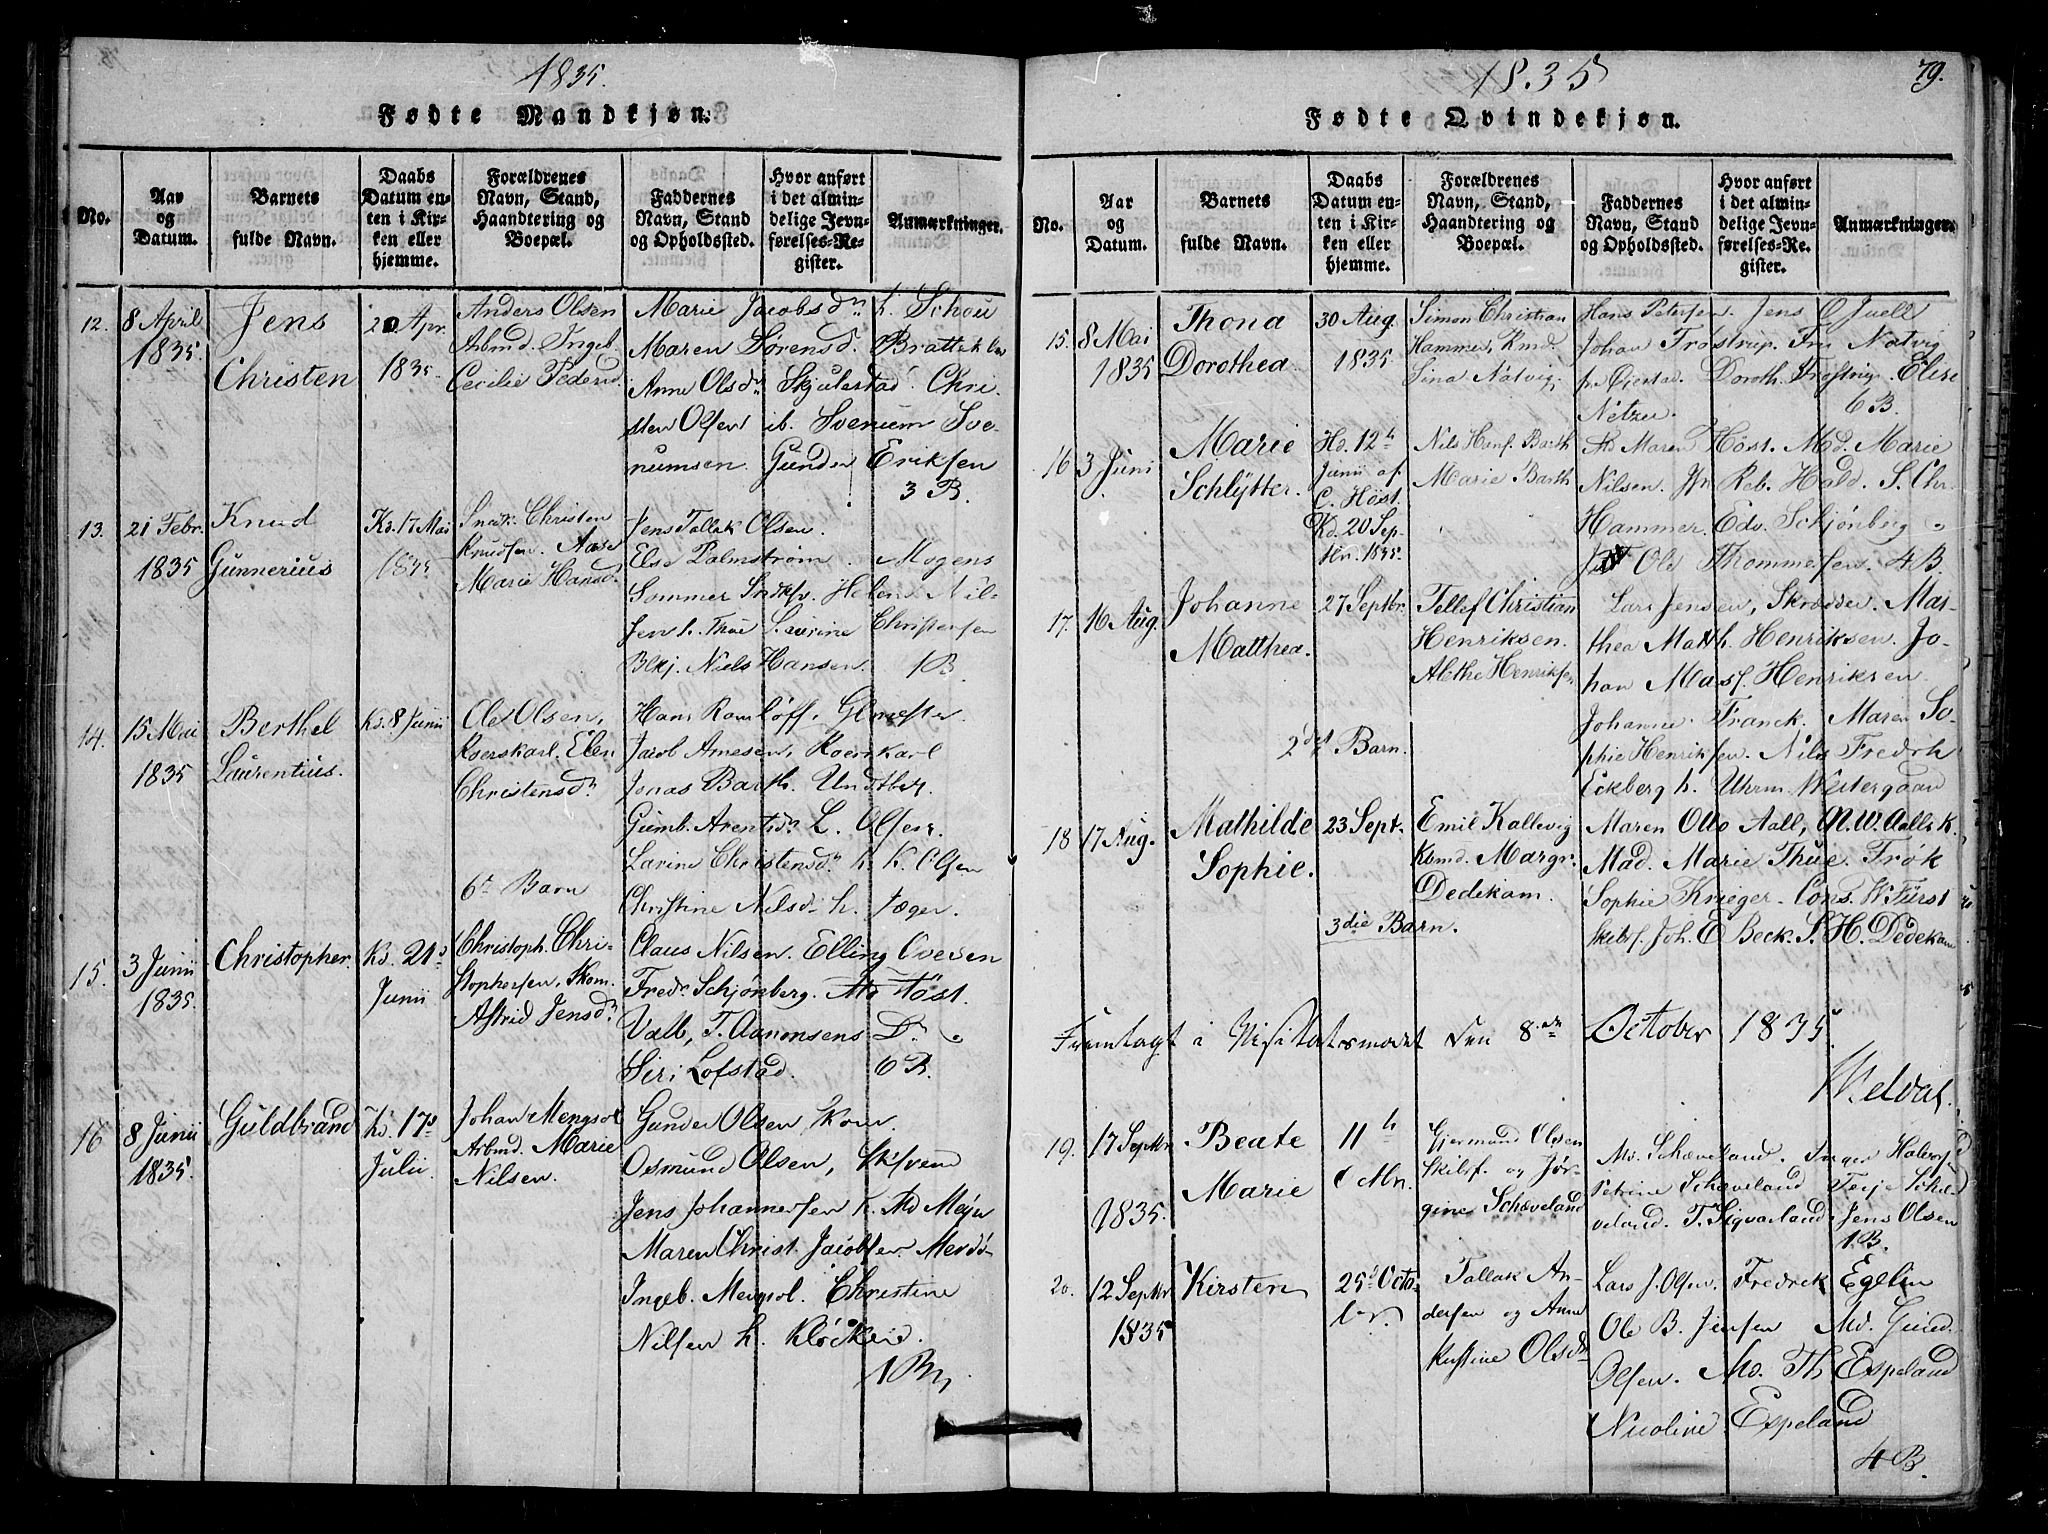 1835.
Fødte Mandkjøn.
No.
Aar og Datum.
Barnets fulde Navn.
Daabs Datum enten i Kirken eller hjemme.
Forældrenes Navn, Stand, Haandtering og Boepæl.
Faddernes Navn, Stand og Opholdssted.
Hvor anført i det almindelige Jevnførelses-Register.
Anmærkninger.
12.
8 April
1835.
Jens
Christen
20 Apr.
1835.
Anders Olsen
Arbmd. Ingeb
Cecilie Pedersd.
Marie Jacobsdn h. Schou
Maren Sørensd. Brattek
Anne Olsdn Skjulestad. Chri
sten Olsen ib. Svenum Sve
numsen. Gunder Eriksen
3 B.
13.
21 Febr.
1835
Knud
Gunnerius
Kd. 17 Mai
1835
Snedk. Christen
Knudsen. Aase
Marie Hansd.
Jens Tallak Olsen.
Else Palmstrøm. Mogens
Sommer Helene Nil
sen h. Thue Severine Christensen
Niels Hansen. 1 B.
14.
15 Mai
1835
Berthel
Laurentius.
Kd. 8 Junii
Ole Olsen,
Koerskarl. Elen
Christensdn
Hans Ramløff, Glmester
Jacob Arnesen, Koerskarl
Jonas Barth. Undtbetj.
Gumb. Arentsdn L. Olsen.
Larine Christensdn h. K. Olsen
6te Barn
Christine Nilsdn h. Jæger.
15.
3 Junii
1835.
Christopher.
Kd. 21d
Junii
Christoph. Chri-
stophersen, Skom.
Astrid Jensdn
Claus Nilsen. Elling Evesen
Fredr Schjønberg. Md Høst.
Valb, T. Aanonsens Dn
Siri Lofstad. 6 B.
16
8 Junii
1835.
Guldbrand
Kd. 17d
Julii
Johan Mengsol
Arbmd. Marie
Nilsen.
Gunder Olsen Skom.
Osmund Olsen, Sk.svend
Jens Johannesen k. Md Mejer
Maren Christ. Jacobsen Merdø
Ingeb. Mengsol. Christine
Nilsen h. Kløcker.
1 Bn
1835
79.
Fødte Qvindekjøn.
No.
Aar og Datum.
Barnets fulde Navn.
Daabs Datum enten i Kirken eller hjemme.
Forældrenes Navn, Stand, Haandtering og Boepæl.
Faddernes Navn, Stand og Opholdssted.
Hvor anført i det almindelige Jevnførelses-Register.
Anmærkninger.
15.
8 Mai
1835
Thona
Dorothea.
30 Aug.
1835.
Simon Christian
Hammer, Kmd.
Sina Natvig,
Hans Petersen. Jens O Juell
Johan Trøstrup. Fru Natvig
fr Øiestad. Doroth. Trøstrup. Elise
Netzer. 6 B.
16
3 Juni
Marie
Schlytter.
Hd. 12te
Junii af
C. Høst.
Kd. 20 Sep-
tbr. 1835.
Nils Hans. Barth
Marie Barth
Md Maren Høst. Md. Marie
Nilsen. Jfr Reb. Hald. S. Chr.
Hammer. Edv. Schjønberg
Ole Thommesen. 4 B.
17.
16 Aug.
Johanne
Matthea.
27 Septbr.
Tellef Christian
Henriksen.
Alethe Henriksen
Lars Jensen, Skrædder. Mat-
thea Math. Henriksen. Jo-
han Mas. Henriksen
Johanne Franck. Maren So-
phie Henriksen. Nils Fredrik
Eckberg h. Uhrm. Westergaan
2det Barn.
18
17 Aug.
Mathilde
Sophie.
23 Sept.
Emil Kallevig
Kbmd. Margr.
Dedekam.
Maren Otto Aall, N. W. Aall k.
Mad. Marie Thue. Frøk
Sophie Krieger. Cons. W. Fürst
Skibsf. Joh. E Beck. S. H. Dedekam
3die Barn.
Fremlagt i Visitatsmødet den 8de October 1835.
19.
17 Septbr
1835.
Beate
Marie
11te
Octbr.
Gjermund Olsen
Skibsf. og Jør-
gine Schæveland
Md. Schæveland. Inger Halvors
Petrine Schæveland Terje Schæ-
veland. T. Sigvarland Jens Olsen
1. B.
20.
12 Septbr
1835
Kirsten
25d Octo-
ber.
Tallak An-
dersen og Anne
Kirstine Olsdn
Lars J. Olsen. Fredrek Egelin
Ole B. Jensen Md. Gund.
Olsen. Md. Th Espeland
Nicoline Espeland
4 B.